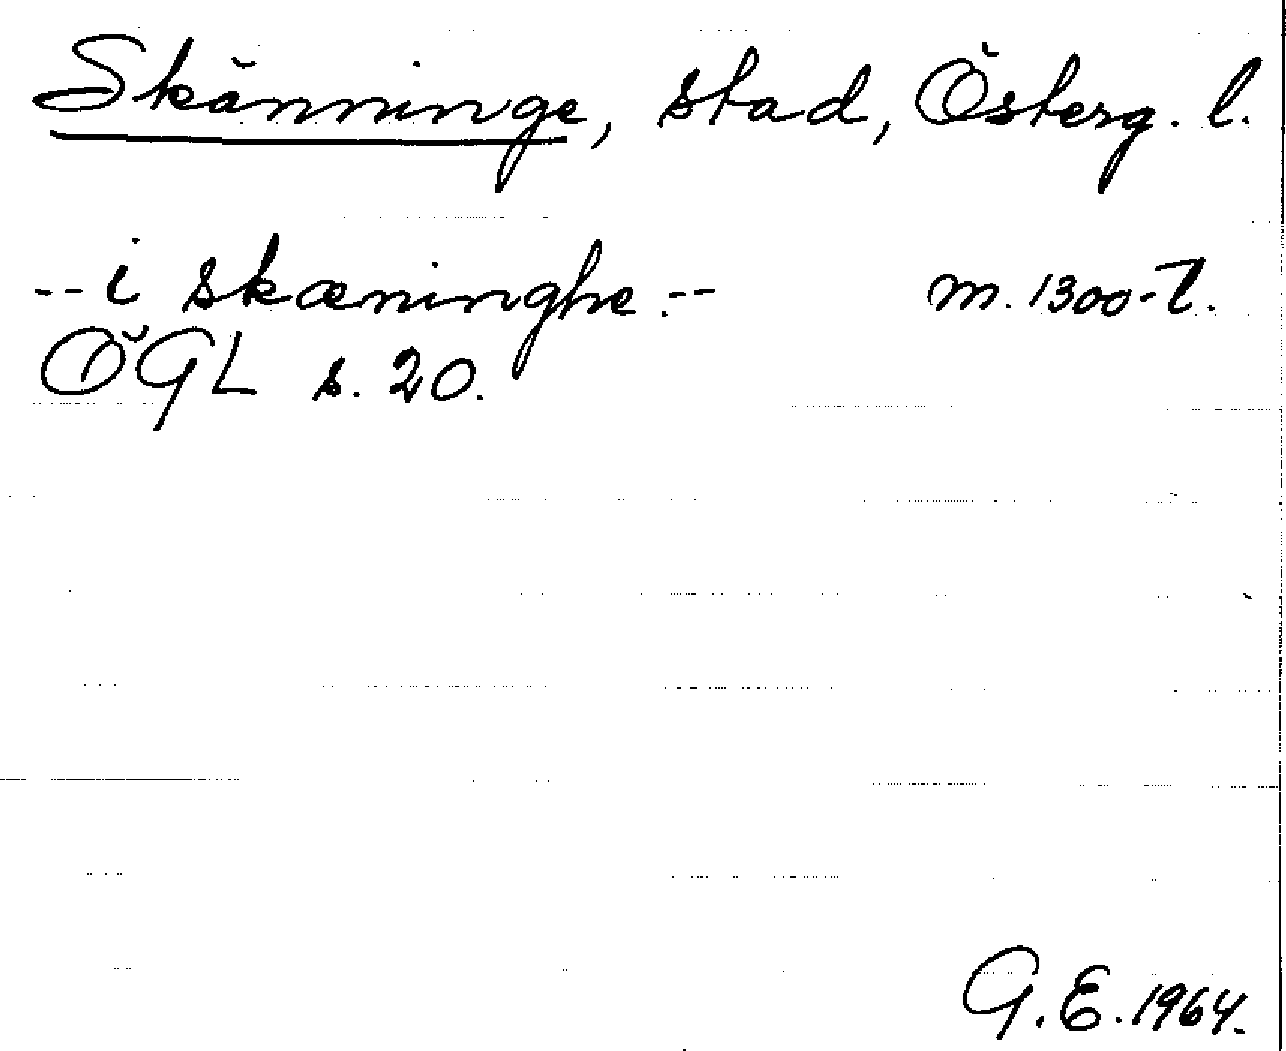 Skänninge, stad, Österg. l.
--i skæninghe.-- m. 1300-t.
ÖGL s. 20.
G.E. 1964.